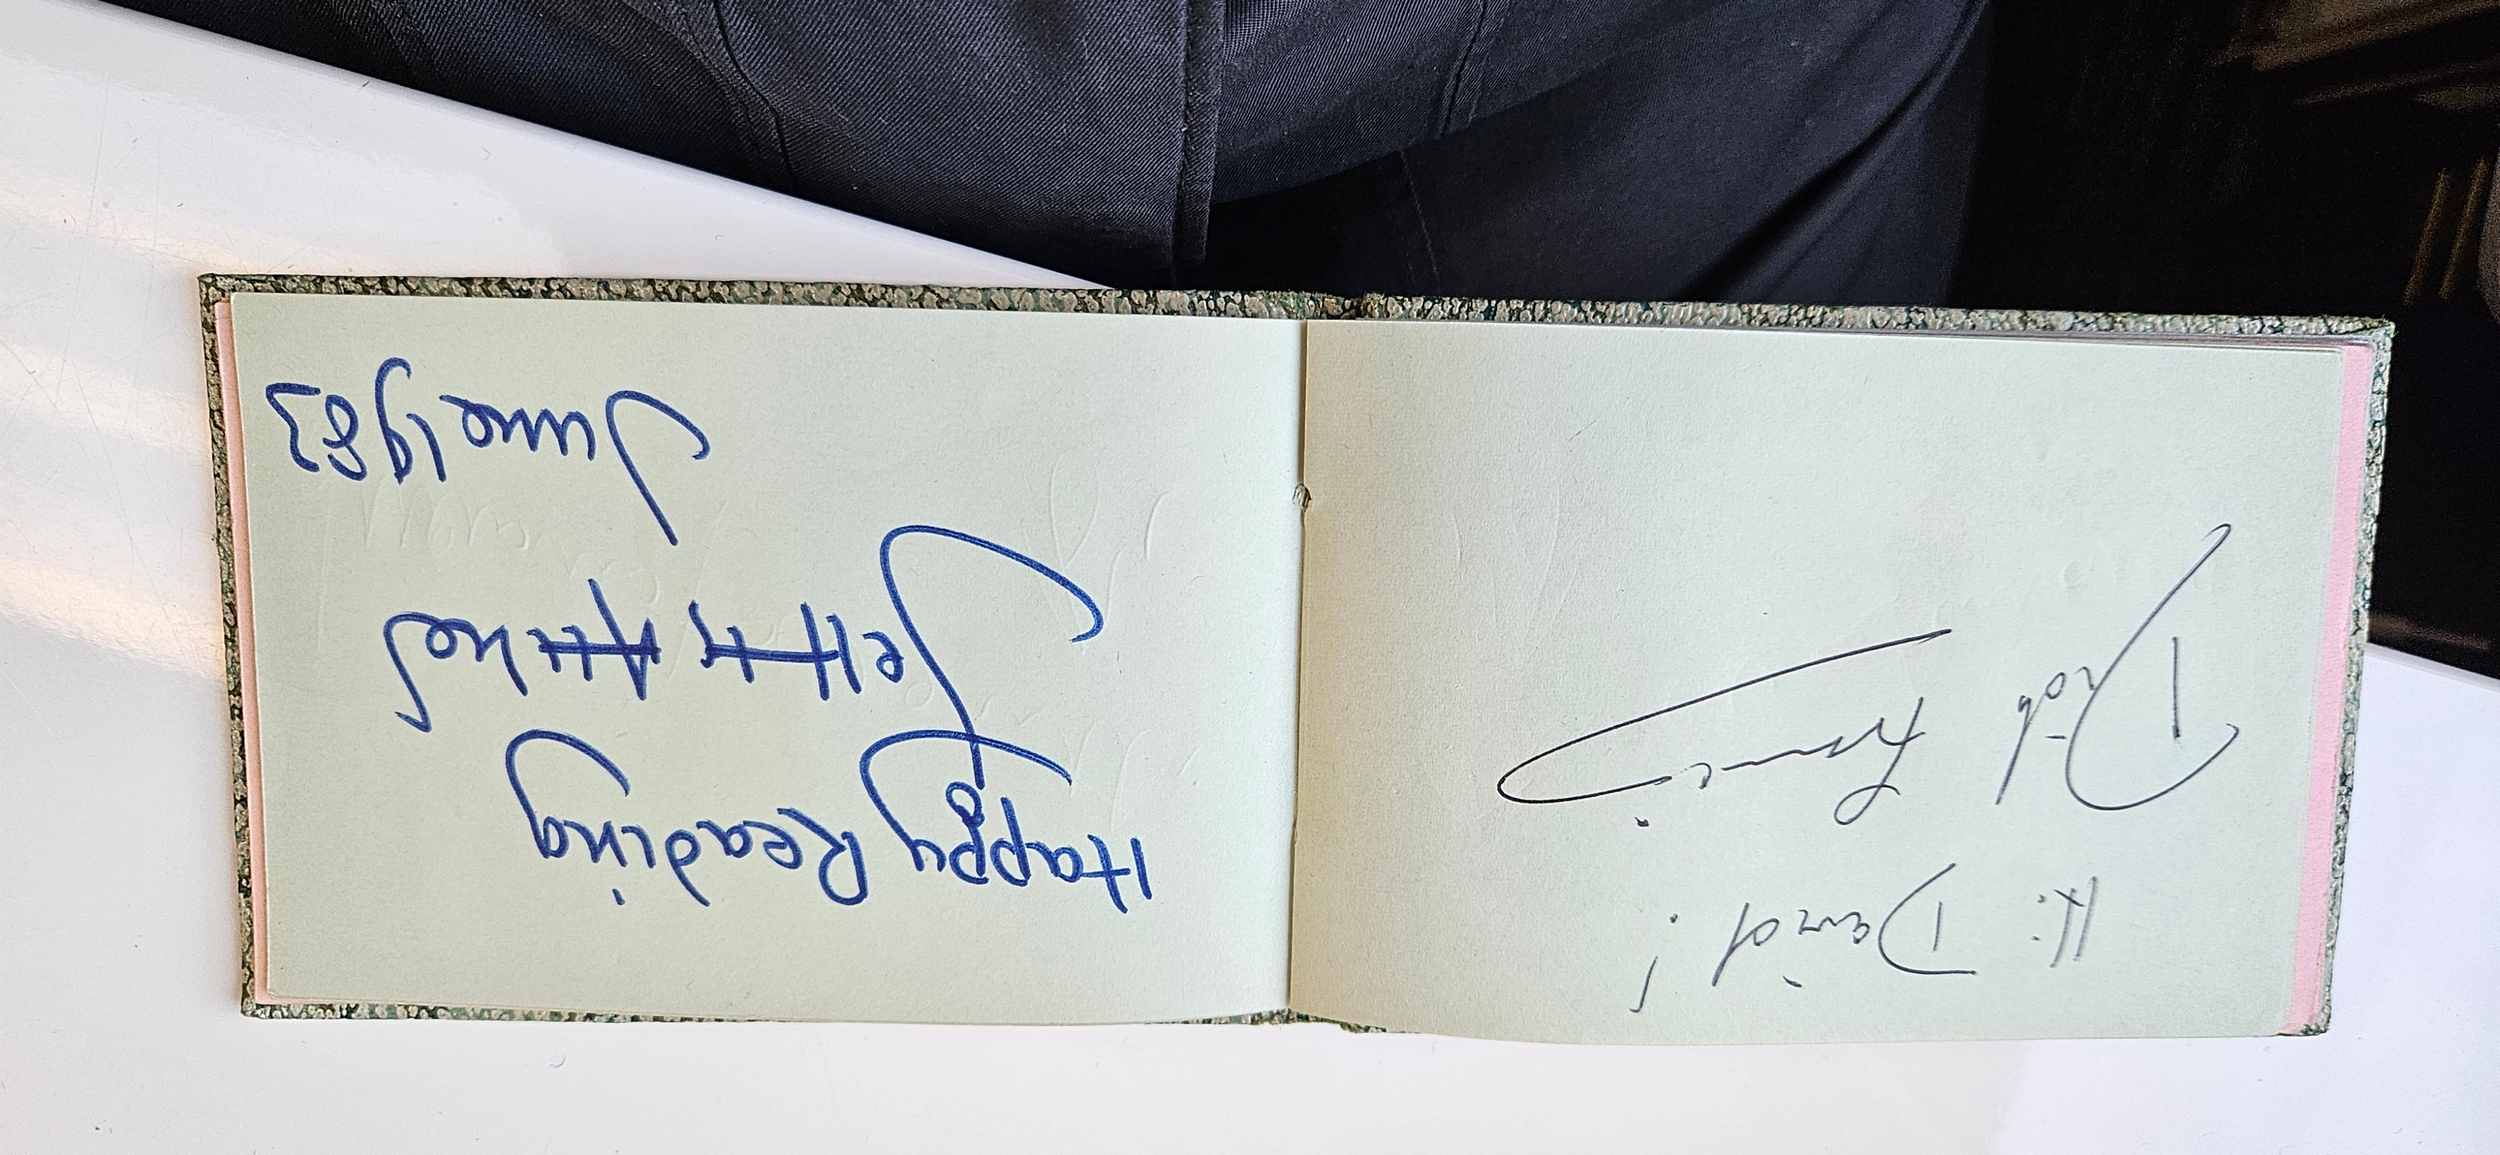 Hi David!
Francis
Happy Reading
Jeffrey Archer
June 1983